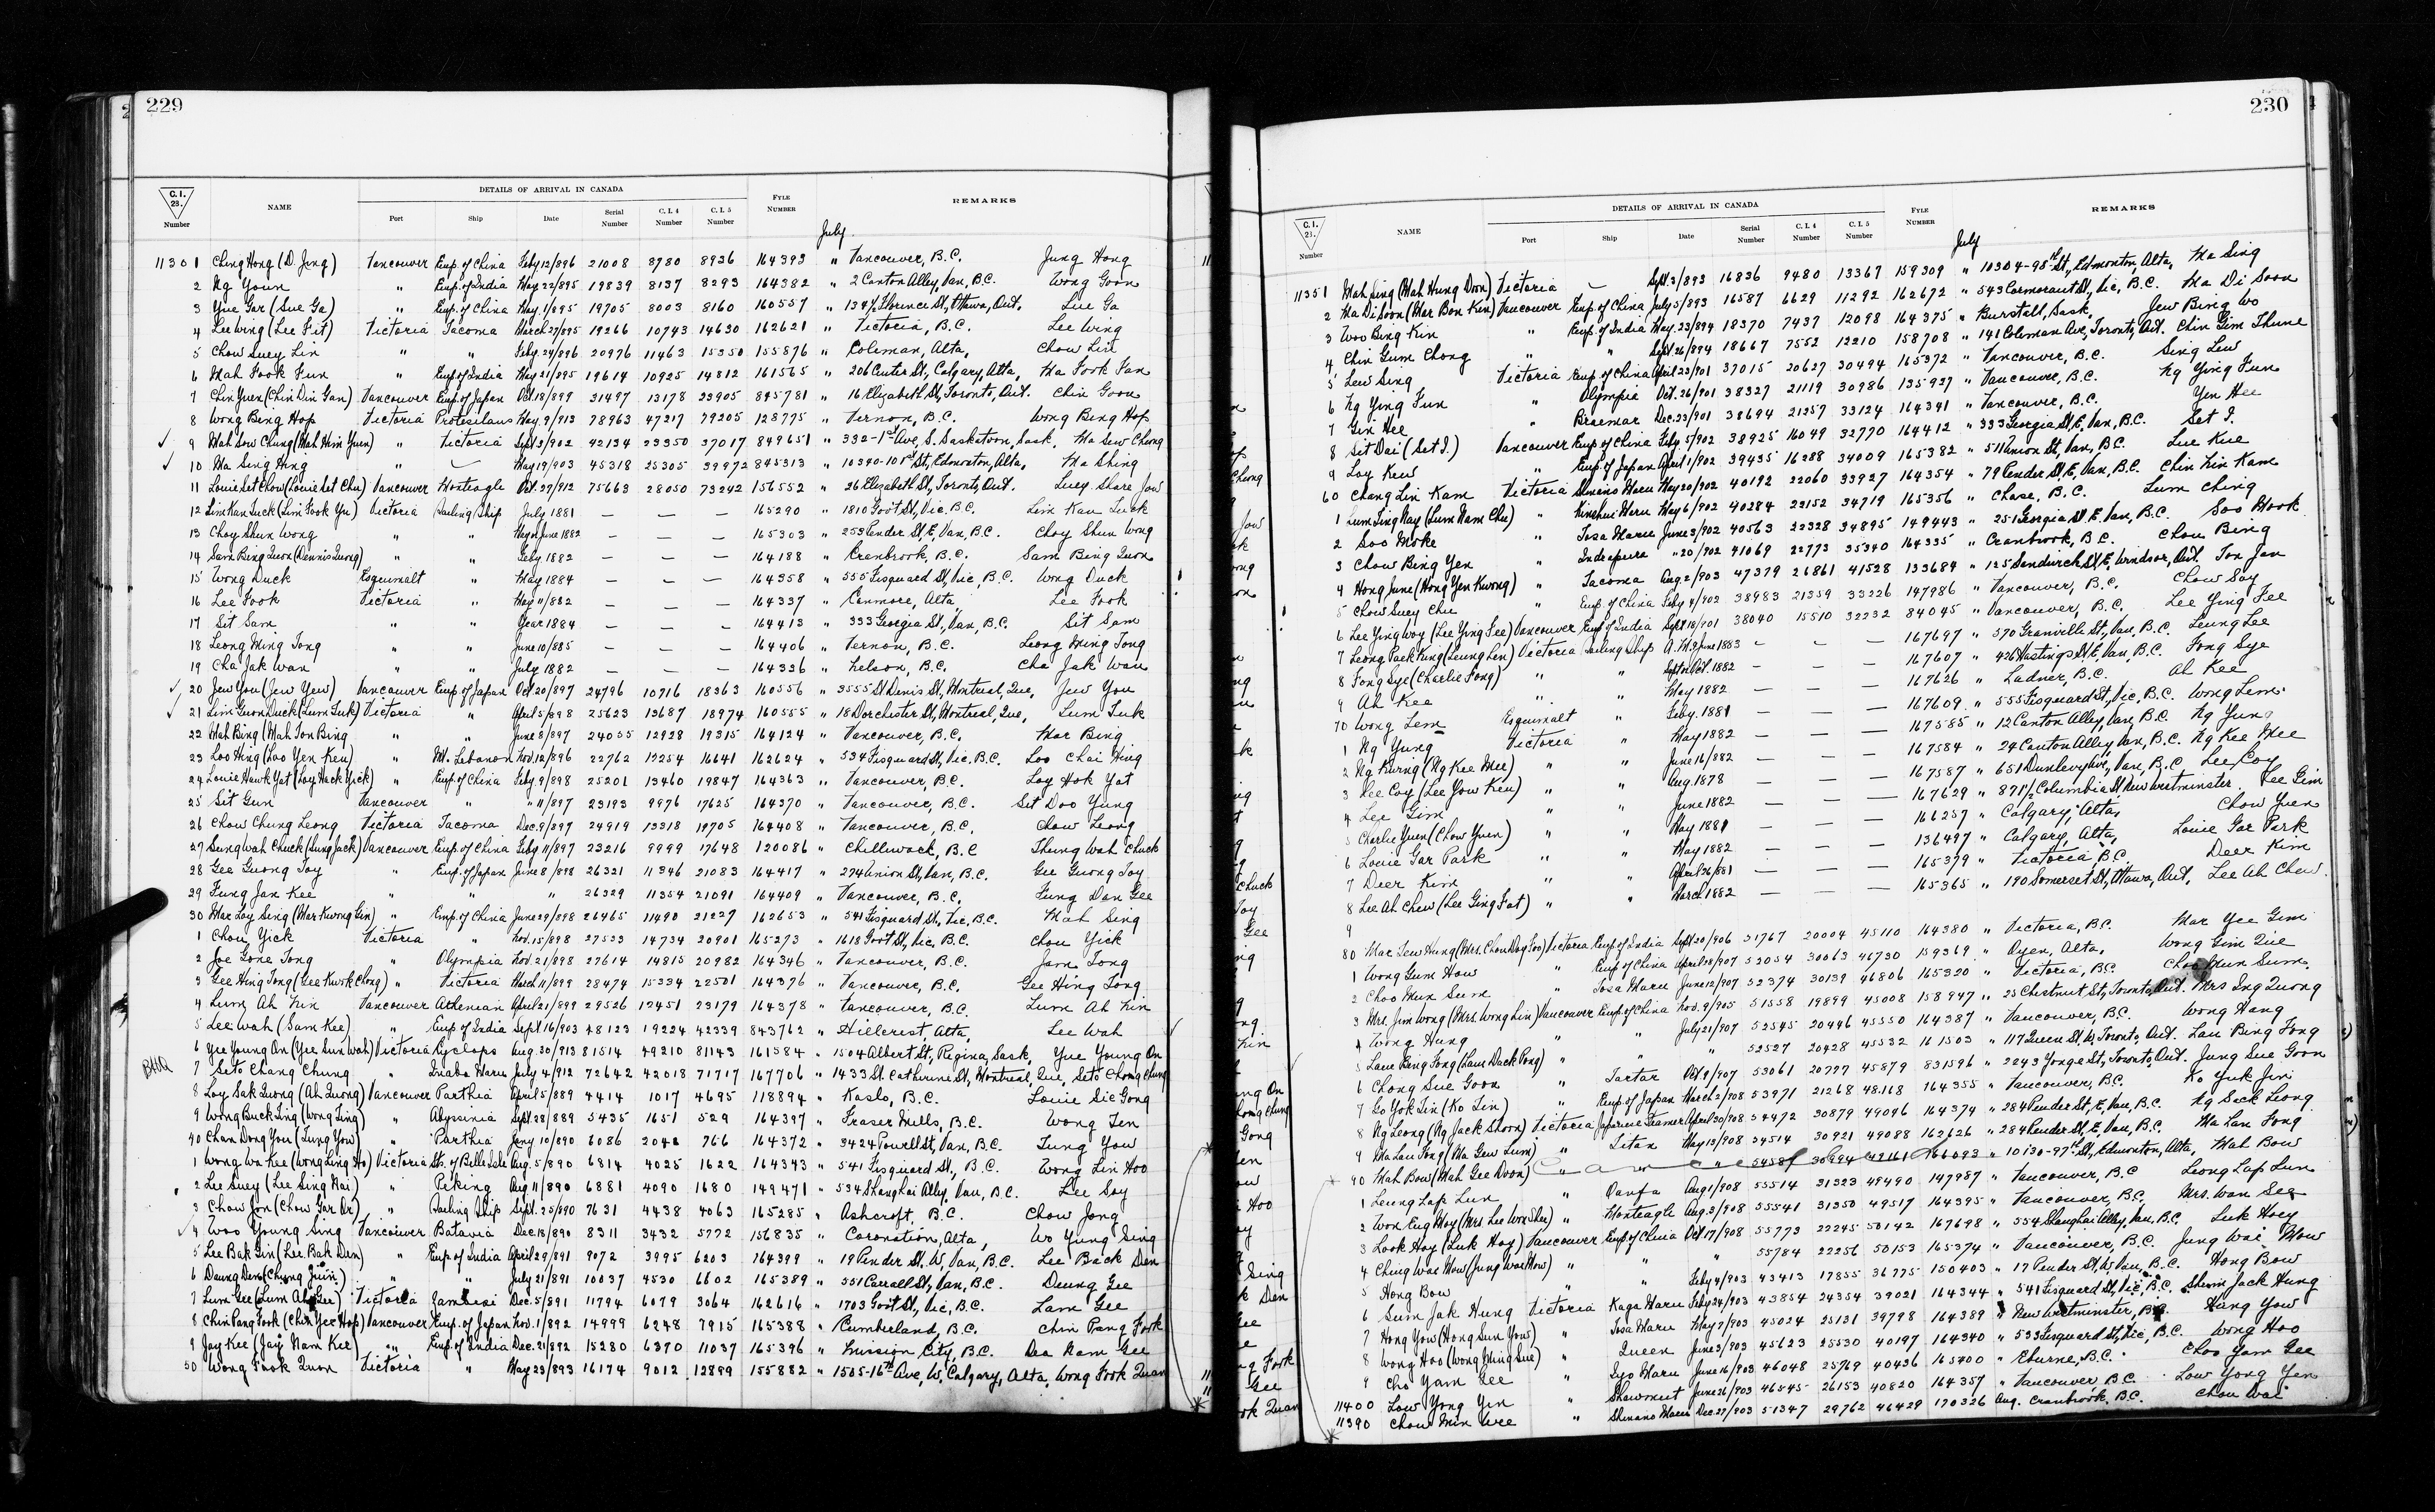 229
DETAILS OF ARRIVAL IN CANADA
C.I. 28. Number NAME Port Ship Date Serial Number C.I. 4 Number C.I. 5 Number FYLE NUMBER REMARKS
July
11301 Ching Hong (D. Jing) Vancouver Emp. of China Feby 12/896 21008 8780 8936 164393 " Vancouver, B.C. Jung Hong
2 Ng Youn " Emp. of India May 22/895 19839 8137 8293 164382 " 2 Canton Alley, Van, B.C. Wong Goon
3 Yue Gar (Sue Ga) " Emp. of China May 1/895 19705 8003 8160 160557 " 134½ Florence St, Ottawa, Ont. Lue Ga
4 Lee Wing (Lee Fit) Victoria Tacoma March 27/895 19266 10743 14630 162621 " Victoria, B.C. Lee Wing
5 Chow Suey Lin " " Feby 24/896 20976 11463 15350 155876 " Coleman, Alta, Chow Lin
6 Mah Fook Fun " Emp. of India May 21/895 19614 10925 14812 161565 " 206 Center St, Calgary, Alta, Ma Fook Fan
7 Chin Yuen (Chin Din Gan) Vancouver Emp. of Japan Oct 18/899 31497 13178 23905 845781 " 16 Elizabeth St, Toronto, Ont. Chin Goon
8 Wong Bing Hop Victoria Protesilaus May 9/912 78963 47217 79205 128775 " Vernon, B.C. Wong Bing Hop
9 Mah Sow Chong (Mah Him Yuen) " Victoria Sept 3/902 42134 23350 37017 849651 " 332-1st Ave, S. Saskatoon, Sask. Ma Sew Chong
10 Ma Sing Hng " May 19/903 45318 25305 39972 845313 " 10340-101st St, Edmonton, Alta, Ma Shing
11 Louie Set Chow (Louie Set Chu) Vancouver Monteagle Oct. 27/912 75663 28050 73242 156552 " 26 Elizabeth St, Toronto, Ont. Luey Share Jow
12 Lim Kan Luck (Lim Fook Yu) Victoria Sailing Ship July 1881 — — — 165290 " 1810 Gov't St, Vic. B.C. Lim Kan Luck
13 Choy Shun Wong " " May or June 1882 — — — 165303 " 253 Pender St, E, Van, B.C. Choy Shun Wong
14 Sam Bing Quon (Dennis Quong) " " Feby 1882 — — — 164188 " Cranbrook, B.C. Sam Bing Quon
15 Wong Duck Esquimalt " May 1884 — — — 164358 " 555 Fisguard St, Vic, B.C. Wong Duck
16 Lee Fook Victoria " May 11/882 — — — 164337 " Canmore, Alta, Lee Fook
17 Sit Sam " " Year 1884 — — — 164413 " 333 Georgia St, Van, B.C. Sit Sam
18 Leong Ming Tong " " June 10/885 — — — 164406 " Vernon, B.C. Leong Ming Tong
19 Cha Jak Wan " " July 1882 — — — 164326 " Nelson, B.C. Cha Jak Wan
20 Jew You (Jew Yew) Vancouver Emp. of Japan Oct 20/897 24796 10716 18363 160556 " 3555 St Denis St, Montreal, Que, Jew You
21 Lim Guon Duck (Lum Tuk) Victoria " April 5/898 25623 13687 18974 160555 " 18 Dorchester St, Montreal, Que, Lum Tuk
22 Mah Bing (Mah Ton Bing " " June 8/897 24055 12928 19315 164124 " Vancouver, B.C. Mar Bing
23 Loo Hing (Loo Yen Ken) " Mt. Lebanon Nov. 12/896 22762 12254 16641 162624 " 534 Fisguard St, Vic, B.C. Loo Chai Hing
24 Louie Hawk Yat (Loy Hack Yick) " Emp. of China Feby 9/898 25201 13460 19847 164363 " Vancouver, B.C. Loy Hok Yat
25 Sit Gun Vancouver " " 11/897 23193 9976 17625 164370 " Vancouver, B.C. Sit Doo Yung
26 Chow Chung Leong Victoria Tacoma Dec. 9/897 24919 13318 19705 164408 " Vancouver, B.C. Chow Leong
27 Sung Wah Chuck (Sung Jack) Vancouver Emp. of China Feby 11/897 23216 9999 17648 120086 " Chilliwack, B.C Thung Wah Chuck
28 Gee Guong Toy " Emp. of Japan June 8/898 26321 11346 21083 164417 " 274 Union St, Van, B.C. Gee Guong Toy
29 Fung Jan Kee " " " 26329 11354 21091 164409 " Vancouver, B.C. Fung Dan Gee
30 Mar Loy Sing (Mar Kwong Gin) " Emp. of China June 29/898 26465 11490 21227 162653 " 541 Fisguard St, Vic, B.C. Mah Sing
1 Chou Yick Victoria " Nov. 15/898 27533 14734 20901 165273 " 1618 Gov't St, Vic, B.C. Chou Yick
2 Joe Gone Tong " Olympia Nov 21/898 27614 14815 20982 164346 " Vancouver, B.C. Jam Tong
3 Gee Hing Tong (Gee Kwok Chong) " Victoria March 11/899 28474 15334 22501 164376 " Vancouver, B.C. Gee Hing Tong
4 Lum Ah Kin Vancouver Athenian April 21/899 29526 12451 23179 164378 " Vancouver, B.C. Lum Ah Kin
5 Lee Wah (Sam Kee) " Emp. of India Sept 16/903 48123 19224 42339 843762 " Hillcrest, Alta, Lee Wah
6 Yee Young On (Yee Sun Wah) Victoria Cyclops Aug. 30/913 81514 49210 81143 161584 " 1504 Albert St, Regina, Sask, Yue Young On
BHQ 7 Seto Chang Chung " Inaba Maru July 4/912 72642 42018 71717 167706 " 1433 St. Catherine St, Montreal, Que, Seto Chong Chung
8 Loy Sak Quong (Ah Quong) Vancouver Parthia April 5/889 4414 1017 4695 118894 " Kaslo, B.C. Louie Sic Gong
9 Wong Buck Ting (Wong Ting) " Abyssinia Sept. 28/889 5435 1651 529 164397 " Fraser Mills, B.C. Wong Ten
40 Chan Dong You (Tung Yow) " Parthia Jany 10/890 6086 2041 766 164372 " 3424 Powell St, Van, B.C. Tung Yow
1 Wong Wa Kee (Wong Ling Ho) Victoria Sts. of Belle Isle Aug. 5/890 6814 4025 1622 164343 " 541 Fisguard St, B.C. Wong Lin Hoo
2 Lee Suey (Lee Sing Nai) " Peking Aug 11/890 6881 4090 1680 149471 " 534 Shanghai Alley, Van, B.C. Lee Soy
3 Chow Jon (Chow Gar Or) " Sailing Ship Sept. 25/890 7631 4438 4063 165285 " Ashcroft, B.C. Chow Jong
4 Woo Young Sing Vancouver Batavia Dec. 18/890 8311 3432 5772 156835 " Coronation, Alta, Wo Yung Sing
5 Lee Bak Gin (Lee Bak Den) " Emp. of India April 29/891 9072 3995 6203 164399 " 19 Pender St, W, Van, B.C. Lee Back Den
6 Daung Den (Chong Juin) " " July 21/891 10037 4530 6602 165389 " 551 Carrall St, Van, B.C. Deung Gee
7 Lum Gee (Lum Ah Gee) Victoria Zambesi Dec. 5/891 11794 6079 3064 162616 " 1703 Gov't St, Vic, B.C. Lam Gee
8 Chin Pang Fook (Chin Yee Hop) Vancouver Emp. of Japan Nov. 1/892 14999 6248 7915 165388 " Cumberland, B.C. Chin Pang Fook
9 Jay Kee (Jay Nam Kee) " Emp. of India Dec. 21/892 15280 6370 11037 165396 " Mission City, B.C. Dea Nam Gee
50 Wong Fook Quon Victoria " May 23/893 16174 9012 12899 155882 " 1505-16th Ave, W, Calgary, Alta, Wong Fook Quan
230
DETAILS OF ARRIVAL IN CANADA
C.I. 28. Number NAME Port Ship Date Serial Number C.I. 4 Number C.I. 5 Number FYLE NUMBER REMARKS
July
11351 Mah Sing (Mah Hung Doon) Victoria — Sept. 2/893 16836 9480 13367 159309 " 10304-98th St, Edmonton, Alta, Ma Sing
2 Ma Di Soon (Mar Bon Ken) Vancouver Emp. of China July 5/893 16587 6629 11292 162672 " 543 Cormorant St, Vic, B.C. Ma Di Soon
3 Woo Bing Kin " Emp. of India May 23/894 18370 7437 12098 164375 " Burstall, Sask, Jew Bing Wo
4 Chin Gum Chong " " Sept 26/894 18667 7552 12210 158708 " 141 Coleman Ave, Toronto, Ont. Chin Gim Thune
5 Lew Sing Victoria Emp. of China April 23/901 37015 20627 30494 165372 " Vancouver, B.C. Sing Lew
6 Ng Ying Fun " Olympia Oct. 26/901 38327 21119 30986 135927 " Vancouver, B.C. Ng Ying Fun
7 Gin Hee " Braemar Dec. 23/901 38694 21257 33124 164341 " Vancouver, B.C. Yen Hee
8 Sit Dai (Set I.) Vancouver Emp. of China Feby 5/902 38925 16049 32770 164412 " 333 Georgia St, E, Van, B.C. Set I.
9 Loy Kew " Emp. of Japan April 1/902 39435 16288 34009 165382 " 511 Union St, Van, B.C. Lue Kue
60 Chang Lin Kam Victoria Maru May 20/902 40192 22060 33927 164354 " 79 Pender St, E, Van, B.C. Chin Lin Kam
1 Lum Ting Nay (Lum Nam Chu) " Kinshui Maru May 6/902 40284 22152 34719 165356 " Chase, B.C. Lum Ching
2 Soo Moke " Tosa Maru June 3/902 40563 22328 34895 149443 " 251 Georgia St E, Van, B.C. Soo Mook
3 Chow Bing Yen " Indrapura " 20/902 41069 22773 35340 164335 " Cranbrook, B.C. Chou Bing
4 Hong June (Hong Yen Kwong) " Tacoma Aug. 2/903 47379 26861 41528 133684 " 125 Sandwich St E, Windsor, Ont. Ton Jan
5 Chow Suey Chu " Emp. of China Feby 4/902 38983 21359 33226 147986 " Vancouver, B.C. Chow Soy
6 Lee Ying Woy (Lee Ying Fee) Vancouver Emp. of India Sept 18/901 38040 15510 32232 84045 " Vancouver, B.C. Lee Ying Fee
7 Leong Paek Kung (Leung Len) Victoria Sailing Ship June 1883 — — — 167697 " 570 Granville St, Van, B.C. Leung Lee
8 Fong Sye (Charlie Fong) " " Sept or Oct. 1882 — — — 167607 " 426 Hastings St, E, Van, B.C. Fong Sye
9 Ah Kee " " May 1882 — — — 167626 " Ladner, B.C. Ah Kee
70 Wong Lem Esquimalt " Feby. 1881 — — — 167609 " 555 Fisguard St, Vic, B.C. Wong Lem
1 Ng Yung Victoria " May 1882 — — — 167585 " 12 Canton Alley, Van, B.C. Ng Yung
2 Ng Kwing (Ng Kee Mee) " " June 16/882 — — — 167584 " 24 Canton Alley, Van, B.C. Ng Kee Mee
3 Lee Coy (Lee Yow Ken) " " Aug. 1878 — — — 167587 " 651 Dunlevy Ave, Van, B.C. Lee Coy
4 Lee Gim " " June 1882 — — — 167629 " 871½ Columbia St, New Westminster. Lee Gim
5 Charlie Yuen (Chow Yuen) " " May 1881 — — — 166257 " Calgary, Alta, Chow Yuen
6 Louie Gar Park " " May 1882 — — — 136497 " Calgary, Alta, Louie Gar Park
7 Deer Kim " " April 26/881 — — — 165379 " Victoria, B.C. Deer Kim
8 Lee Ah Chew (Lee Ging Fat) " " March 1882 — — — 165365 " 190 Somerset St, Ottawa, Ont, Lee Ah Chew
9
80 Mar Tew Hung (Mrs. Chou Dog Foo) Victoria Emp. of India Sept 20/906 51767 20004 45110 164380 " Victoria, B.C. Mar Yee Gim
1 Wong Gum How " Emp. of China April 28/907 52054 30063 46730 159369 " Oyen, Alta, Wong Gim Que
2 Choo Mun Sum " Tosa Maru June 12/907 52374 30139 46806 165320 " Victoria, B.C. Choo Mun Sum
3 Mrs. Jim Wong (Mrs. Wong Lin) Vancouver Emp. of China Nov. 9/905 51558 19899 45008 158947 " 25 Chestnut St, Toronto, Ont. Mrs Ing Quong
4 Wong Hung " " July 21/907 52545 20446 45550 164387 " Vancouver, B.C. Wong Hang
5 Lane Bing Fong (Lam Dack Pong) " " " 52527 20428 45532 161503 " 117 Queen St, W, Toronto, Ont. Lau Bing Fong
6 Chong Sue Goon " Tartar Oct 9/907 53061 20777 45879 831596 " 2243 Yonge St, Toronto, Ont. Jung Sue Goon
7 Co Yok Tin (Ko Lin) " Emp. of Japan March 2/908 53971 21268 48168 164355 " Vancouver, B.C. Ko Yuk Jin
8 Ng Leong (Ng Jack Shorn) Victoria Japanese Tramer April 30/908 54472 30879 49046 164374 " 284 Pender St, E, Van, B.C. Ng Seck Leong
9 Ma Lan Tong (Ma Gew Sum) " Titan May 13/908 54514 30921 49088 162626 " 284 Pender St, E, Van, B.C. Ma Lan Fong
90 Mah Bow (Mah Gee Doon) Cancelled " " 54587 30994 49161 166093 " 10130-97th St, Edmonton, Alta, Mah Bow
1 Leung Lap Lun " Oanfa Aug 1/908 55514 31323 49490 147987 " Vancouver, B.C Leong Lap Lun
2 Won Eug Moy (Mrs. Lee Won Shee) " Monteagle Aug. 3/908 55541 31350 49517 164395 " Vancouver, B.C, Mrs. Wan See
3 Look Hoy (Luk Hoy) Vancouver Emp. of China Oct 17/908 55773 22245 50142 167698 " 554 Shanghai Alley, Van, B.C. Luk Hoey
4 Ching Wae How (Jung Wae How) " " 55784 22256 50153 165374 " Vancouver, B.C. Jung Wai Mow
5 Hong Bow " " Feby 4/903 43413 17855 36775 150403 " 17 Pender St, W, Van, B.C. Hong Bow
6 Sum Jak Hung Victoria Kaga Maru Feby 24/903 43854 24354 39021 164344 " 541 Fisguard St, Vic, B.C. Shem Jack Hung
7 Hong You (Hong Sun Yow) " Tosa Maru May 7/903 45024 25131 39798 164389 " New Westminster, B.C. Hung Yow
8 Wong Hoo (Wong Ming Sue) " Queen June 3/903 45623 25530 40197 164340 " 533 Fisguard St, Vic, B.C. Wong Hoo
9 Cho Yam Gee " Iyo Maru June 16/903 46048 25769 40436 165400 " Eburne, B.C. Choo Yam Gee
11400 Low Yong Yin " Shawmut June 26/903 46545 26153 40820 164357 " Vancouver, B.C. Low Yong Yen
11390 Chow Min Wee " Shinano Maru Dec. 27/903 51347 29762 46429 170326 Aug. Cranbrook, B.C. Chou Wai